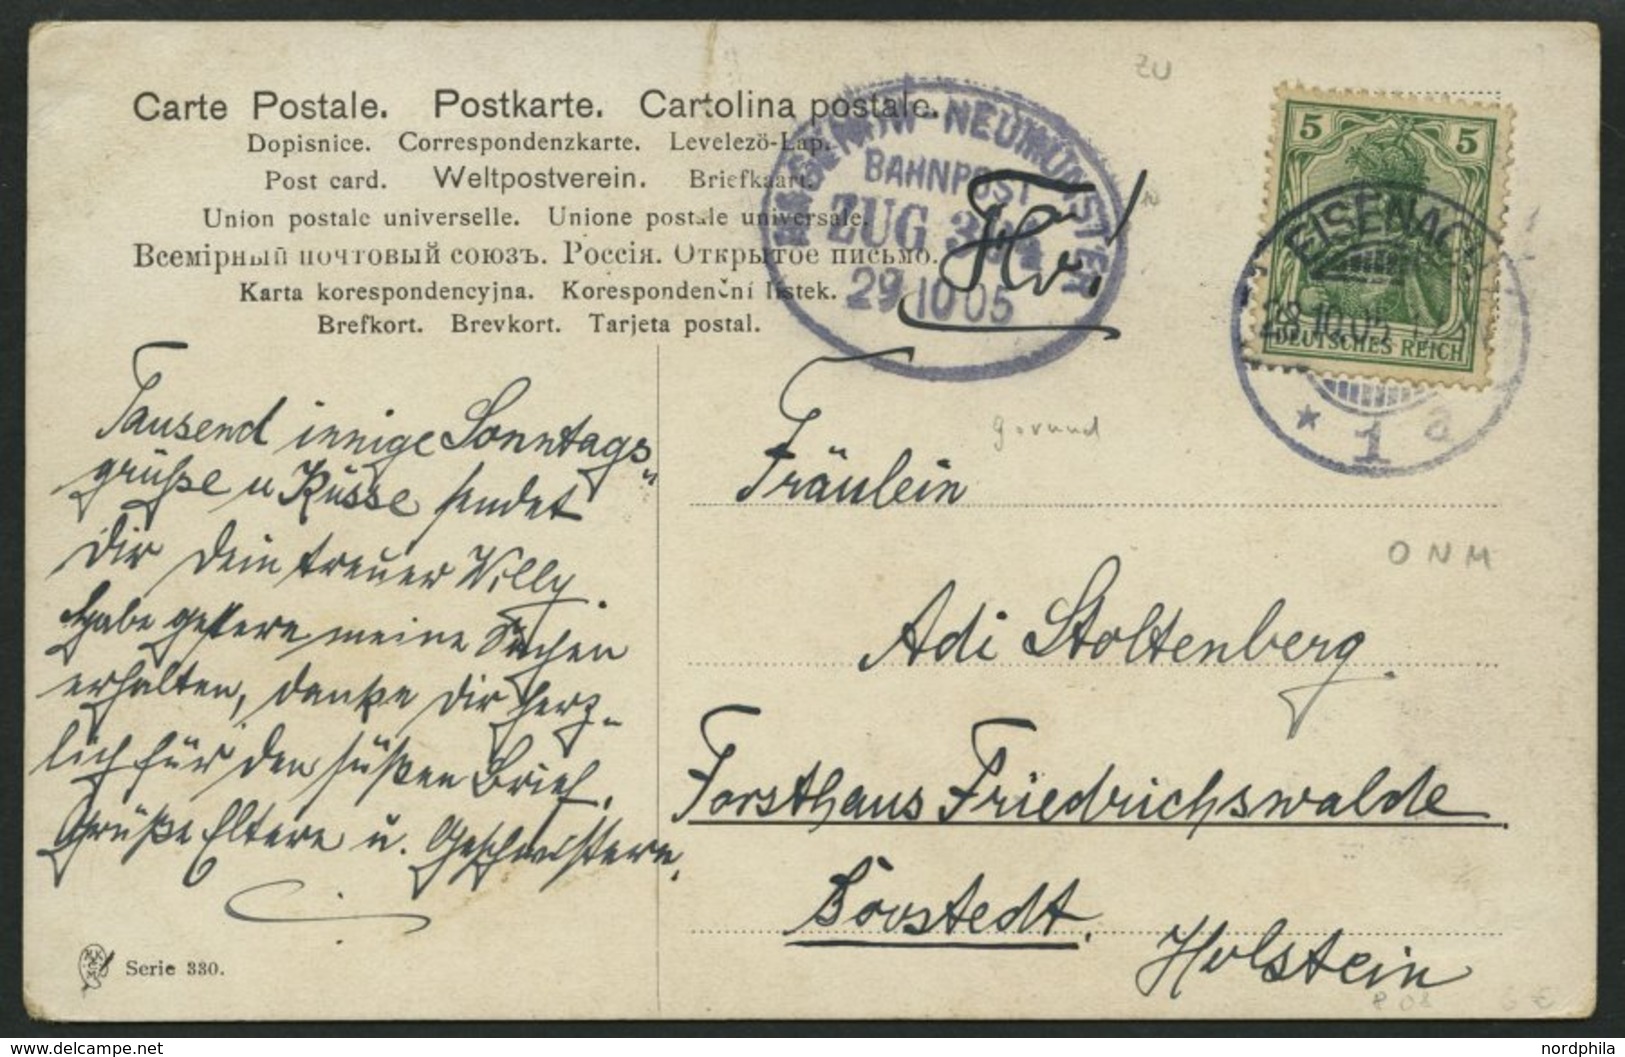 Carte Postale. Postkarte. Cartolina postale.
Dopisnice. Correspondenzkarte. Levelezö-Lap.
Post card. Weltpostverein. Briefkaart.
Union postale universelle. Unione postale universale.
Всемірный почтовый союзъ. Россія. Открытое письмо.
Karta korespondencyjna. Korespondenční lístek.
Brefkort. Brevkort. Tarjeta postal.
NEUMÜNSTER
BAHNPOST
ZUG
29 10 05
ZU
5 5
DEUTSCHES REICH
EISENACH
28.10.05
* 1 a
Tausend innige Sonntags-
grüße u Küsse sendet
Dir Dein treuer Willy.
Habe gestern meine Sachen
erhalten, danke Dir herz-
lich für den süßen Brief.
Grüße Eltern u. Geschwistern.
Fräulein
ONM
Adi Stoltenberg.
Forsthaus Friedrichswalde
Holstein
Serie 330.
6 €
delcampe.net
nordphila